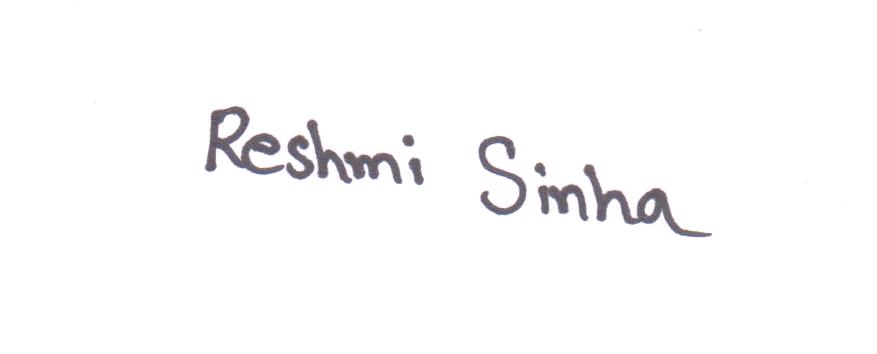 Reshmi Sinha